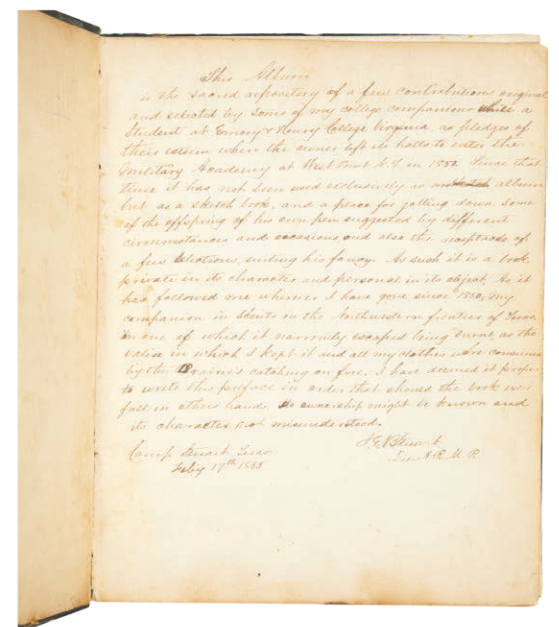 This Album
is the sacred repository of a few contributions original
and selected by some of my college companions while a
Student at Emory & Henry College Virginia, as pledges of
their esteem when the owner left its halls to enter the
Military Academy at West Point N.Y. in 1850. Since that
time it has not been used exclusively as an album
but as a sketch book, and a place for jotting down some
of the offspring of his own pen suggested by different
circumstances and occasions and also the receptacle of
a few selections, suiting his fancy. As such it is a book
private in its character and personal in its object. As it
has followed me wherever I have gone since 1850, my
companion in scouts on the Northwestern frontier of Texas,
in one of which it narrowly escaped being burnt, as the
valise in which I kept it and all my clothes were consumed
by the Prairie's catching on fire. I have deemed it proper
to write this preface in order that should the book ever
fall in others hands, its ownership might be known and
its character not misunderstood.
Camp Stuart Texas
Feby 17th 1855
J.E.B. Stuart
R.M.R.